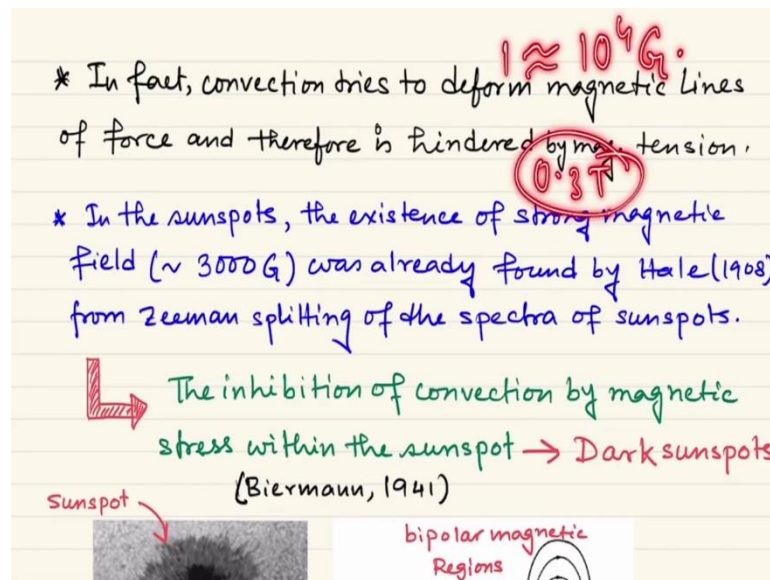 1 ≈ 10⁴ G.
* In fact, convection tries to deform magnetic lines
of force and therefore is hindered by mag. tension.
0.3 T
* In the sunspots, the existence of strong magnetic
field (~ 3000 G) was already found by Hale (1908)
from Zeeman splitting of the spectra of sunspots.
The inhibition of convection by magnetic
stress within the sunspot → Dark sunspots
(Biermann, 1941)
Sunspot
bipolar magnetic
Regions